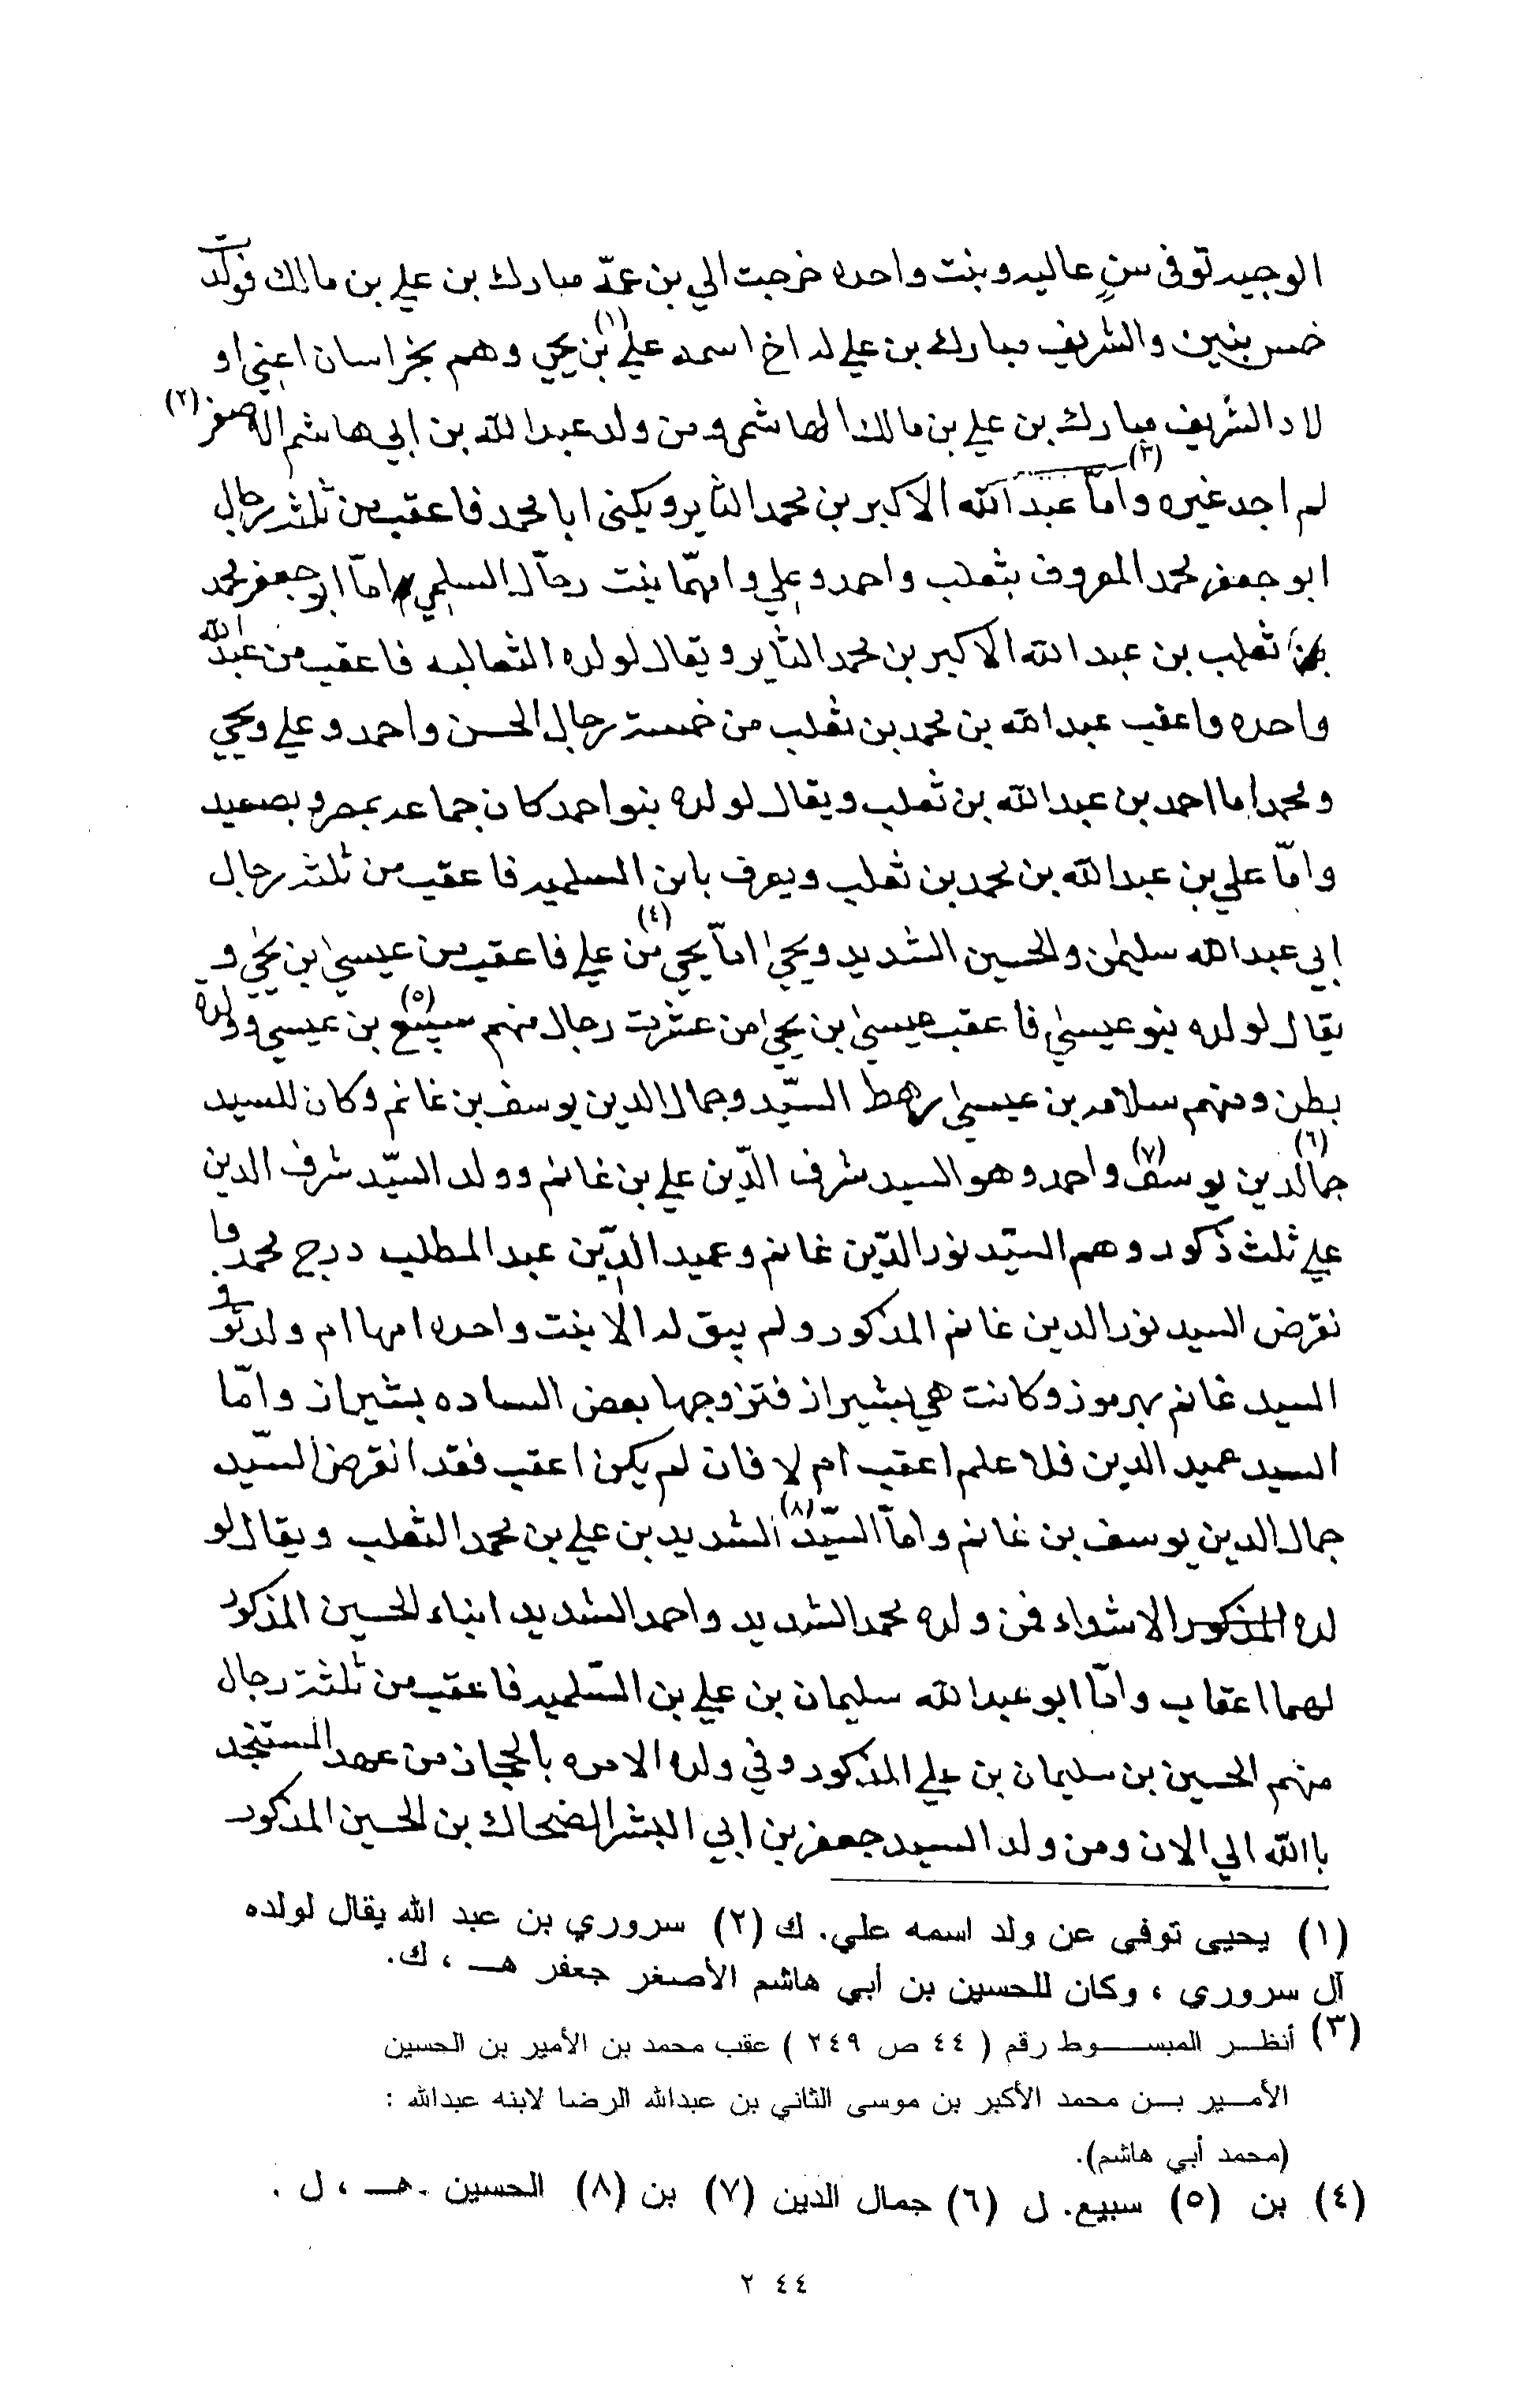 الوجيه توفى سن عاليه وبنت واحده خرجت الي بن عمّه مبارك بن علي بن مالك فولدت
خمس بنين والشريف مبارك بن علي له اخ اسمه علي (١) بن يحيي وهم بخراسان اعني او
لاد الشريف مبارك بن علي بن مالك الهاشمي ومن ولد عبد الله بن ابي هاشم الاصغر (٢)
لم اجد غيره وامّا (٣) عبد الله الاكبر بن محمد الثاير ويكنى ابا محمد فاعقب من ثلثه رجال
ابو جعفر محمد المعروف بثعلب واحمد وعلي وامهمّا بنت رحال السلمي امّا ابو جعفر محمد
ثعلب بن عبد الله الاكبر بن محمد الثاير ويقال لولده الثعالبه فاعقب من عبد الله
واحده واعقب عبد الله بن محمد بن ثعلب من خمسة رجال الحسن واحمد وعلي ويحيي
ومحمد اما احمد بن عبد الله بن ثعلب ويقال لولده بنو احمد كان جماعه بمصر وبصعيد
وامّا علي بن عبد الله بن محمد بن ثعلب ويعرف بابن السلميه فاعقب من ثلثه رجال
ابي عبد الله سليمن والحسين الشديد ويحيي امّا يحيي (٤) من علي فاعقب من عيسي بن يحيي و
يقال لولده بنو عيسي فاعقب عيسي بن يحيي من عشرت رجال منهم سبيع (٥) بن عيسي وولده
بطن ومنهم سلامه بن عيسي رهط السيّد وجمال الدين يوسف بن غانم وكان للسيد
جمالدين (٦) يوسف (٧) واحمد وهو السيد شرف الدّين علي بن غانم وولد السيّد شرف الدين
علي ثلث ذكور وهم السيّد نور الدّين غانم وعميد الدّين عبد المطلب درج محمد وا
نقرض السيد نور الدين غانم المذكور ولم يبق له الا بنت واحده امها ام ولد توفي
السيد غانم بهرموز وكانت هي بشيراز فتزوجها بعض الساده بشيراز وامّا
السيد عميد الدين فلا علم اعقب ام لا فان لم يكن اعقب فقد انقرض السّيد
جمال الدين يوسف بن غانم وامّا السيّد (٨) الشديد بن علي بن محمد الثعلب ويقال لو
لده المذكور الاشداء فمن ولده محمد الشديد واحمد الشديد ابناء الحسين المذكور
لهما اعقاب وامّا ابو عبد الله سليمان بن علي بن السّلميه فاعقب من ثلثة رجال
منهم الحسين بن سليمان بن علي المذكور وفي ولده الامره بالحجاز من عهد المستنجد
باالله الي الان ومن ولد السيد جعفر بن ابي البشر الضحاك بن الحسين المذكور
(١) يحيى توفي عن ولد اسمه علي. ك (٢) سروري بن عبد الله يقال لولده
آل سروري ، وكان للحسين بن أبي هاشم الأصغر جعفر هـ ، ك.
(٣) أنظر المبسوط رقم ( ٤٤ ص ٢٤٩ ) عقب محمد بن الأمير بن الحسين
الأمير بن محمد الأكبر بن موسى الثاني بن عبدالله الرضا لابنه عبدالله :
(محمد أبي هاشم).
(٤) بن (٥) سبيع. ل (٦) جمال الدين (٧) بن (٨) الحسين . هـ ، ل .
٢٤٤